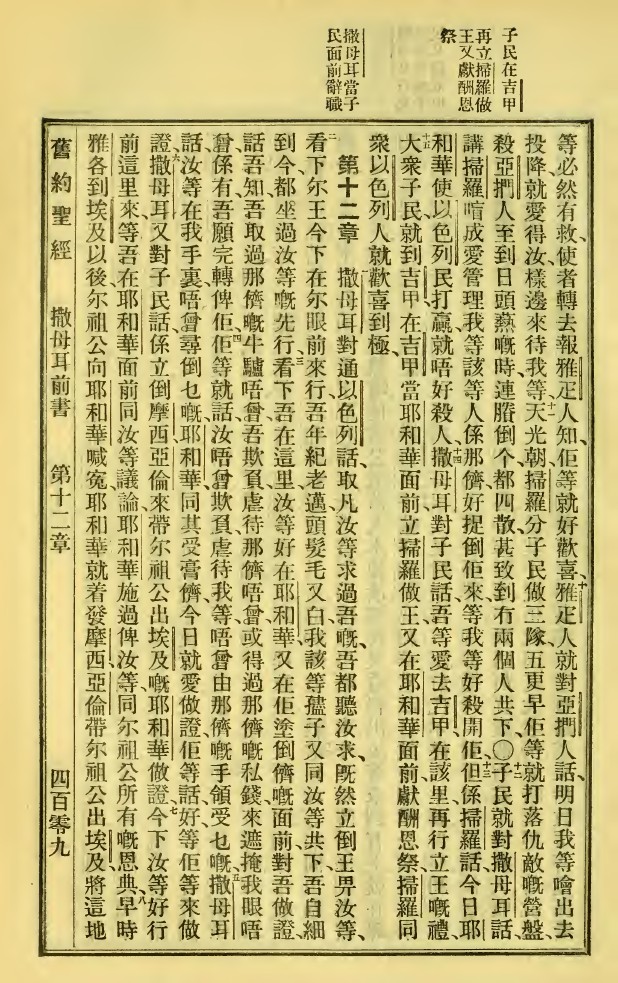 子民在吉甲
再立掃羅做
王又獻酬恩
祭
撒母耳當子
民面前辭職
等必然有救、使者轉去報雅疋人知佢等就好歡喜、十雅疋人就對亞捫人話、明日我等噲出去
投降就愛得汝樣邊來待我等、十一天光朝、掃羅分子民做三隊、五更早佢等就打落仇敵嘅營盤、
殺亞捫人至到日頭𤋮嘅時連賸倒个都四散、甚致到冇兩個人共下、〇十二子民就對撒母耳話、
講掃羅唔成愛管理我等該等人係那儕好捉倒佢來等我等好殺開佢、十三但係掃羅話、今日耶
和華使以色列民打贏就唔好殺人、十四撒母耳對子民話、吾等愛去吉甲、在該里再行立王嘅禮、
十五大衆子民就到吉甲、在吉甲當耶和華面前立掃羅做王、又在耶和華面前獻酬恩祭、掃羅同
衆以色列人就歡喜到極、
第十二章 一撒母耳對通以色列話、取凡汝等求過吾嘅、吾都聽汝求、既然立倒王畀汝等、
二看下尓王今下在尓眼前來行、吾年紀老邁、頭髮毛又白、我該等孻子又同汝等共下、吾自細
到今都坐過汝等嘅先行、三看下吾在這里、汝等好在耶和華又在佢塗倒儕嘅面前對吾做證、
話吾知吾取過那儕嘅牛驢唔曾、吾欺負虐待那儕唔曾、或得過那儕嘅私錢來遮掩我眼唔
曾、係有吾願完轉俾佢、四佢等就話、汝唔曾欺負虐待我等、唔曾由那儕嘅手領受乜嘅、五撒母耳
話、汝等在我手裏唔曾尋倒乜嘅、耶和華同其受膏儕今日就愛做證、佢等話、好等佢等來做
證、六撒母耳又對子民話、係立倒摩西亞倫來帶尓祖公出埃及嘅耶和華做證、七今下汝等好行
前這里來、等吾在耶和華面前同汝等議論耶和華施過俾汝等同尓祖公所有嘅恩典、八早時
雅各到埃及以後、尓祖公向耶和華喊寃、耶和華就着發摩西亞倫帶尓祖公出埃及、將這地
舊約聖經 撒母耳前書 第十二章 四百零九